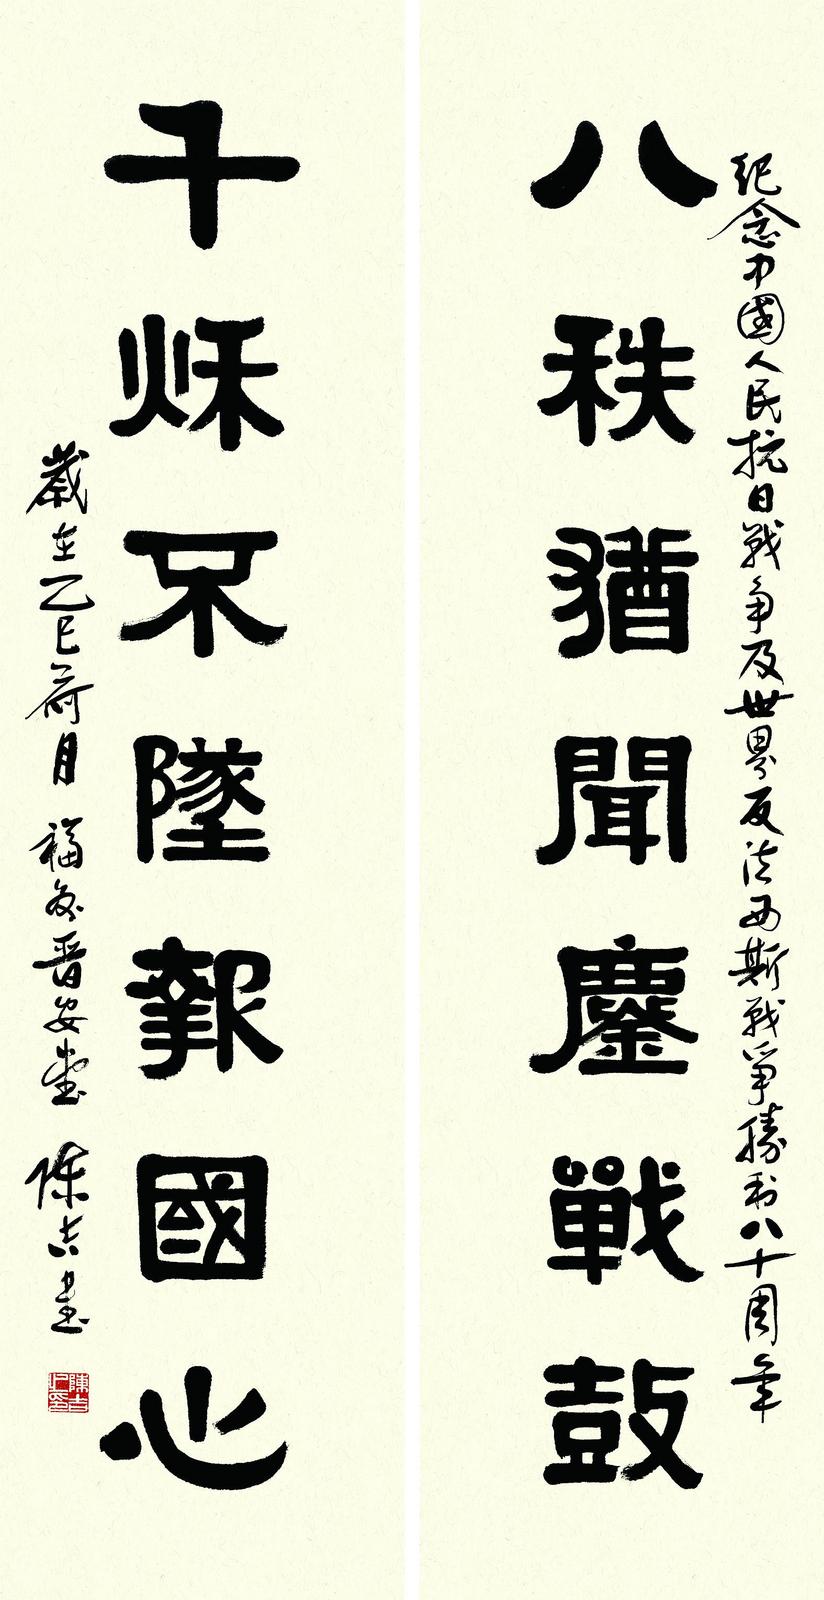 紀念中國人民抗日戰争及世界反法西斯戰爭勝利八十周年
八秩猶聞鏖戰鼓
千秋不墜報國心
歲在乙巳荷月 福 晉安 陳吉書
陳吉之印